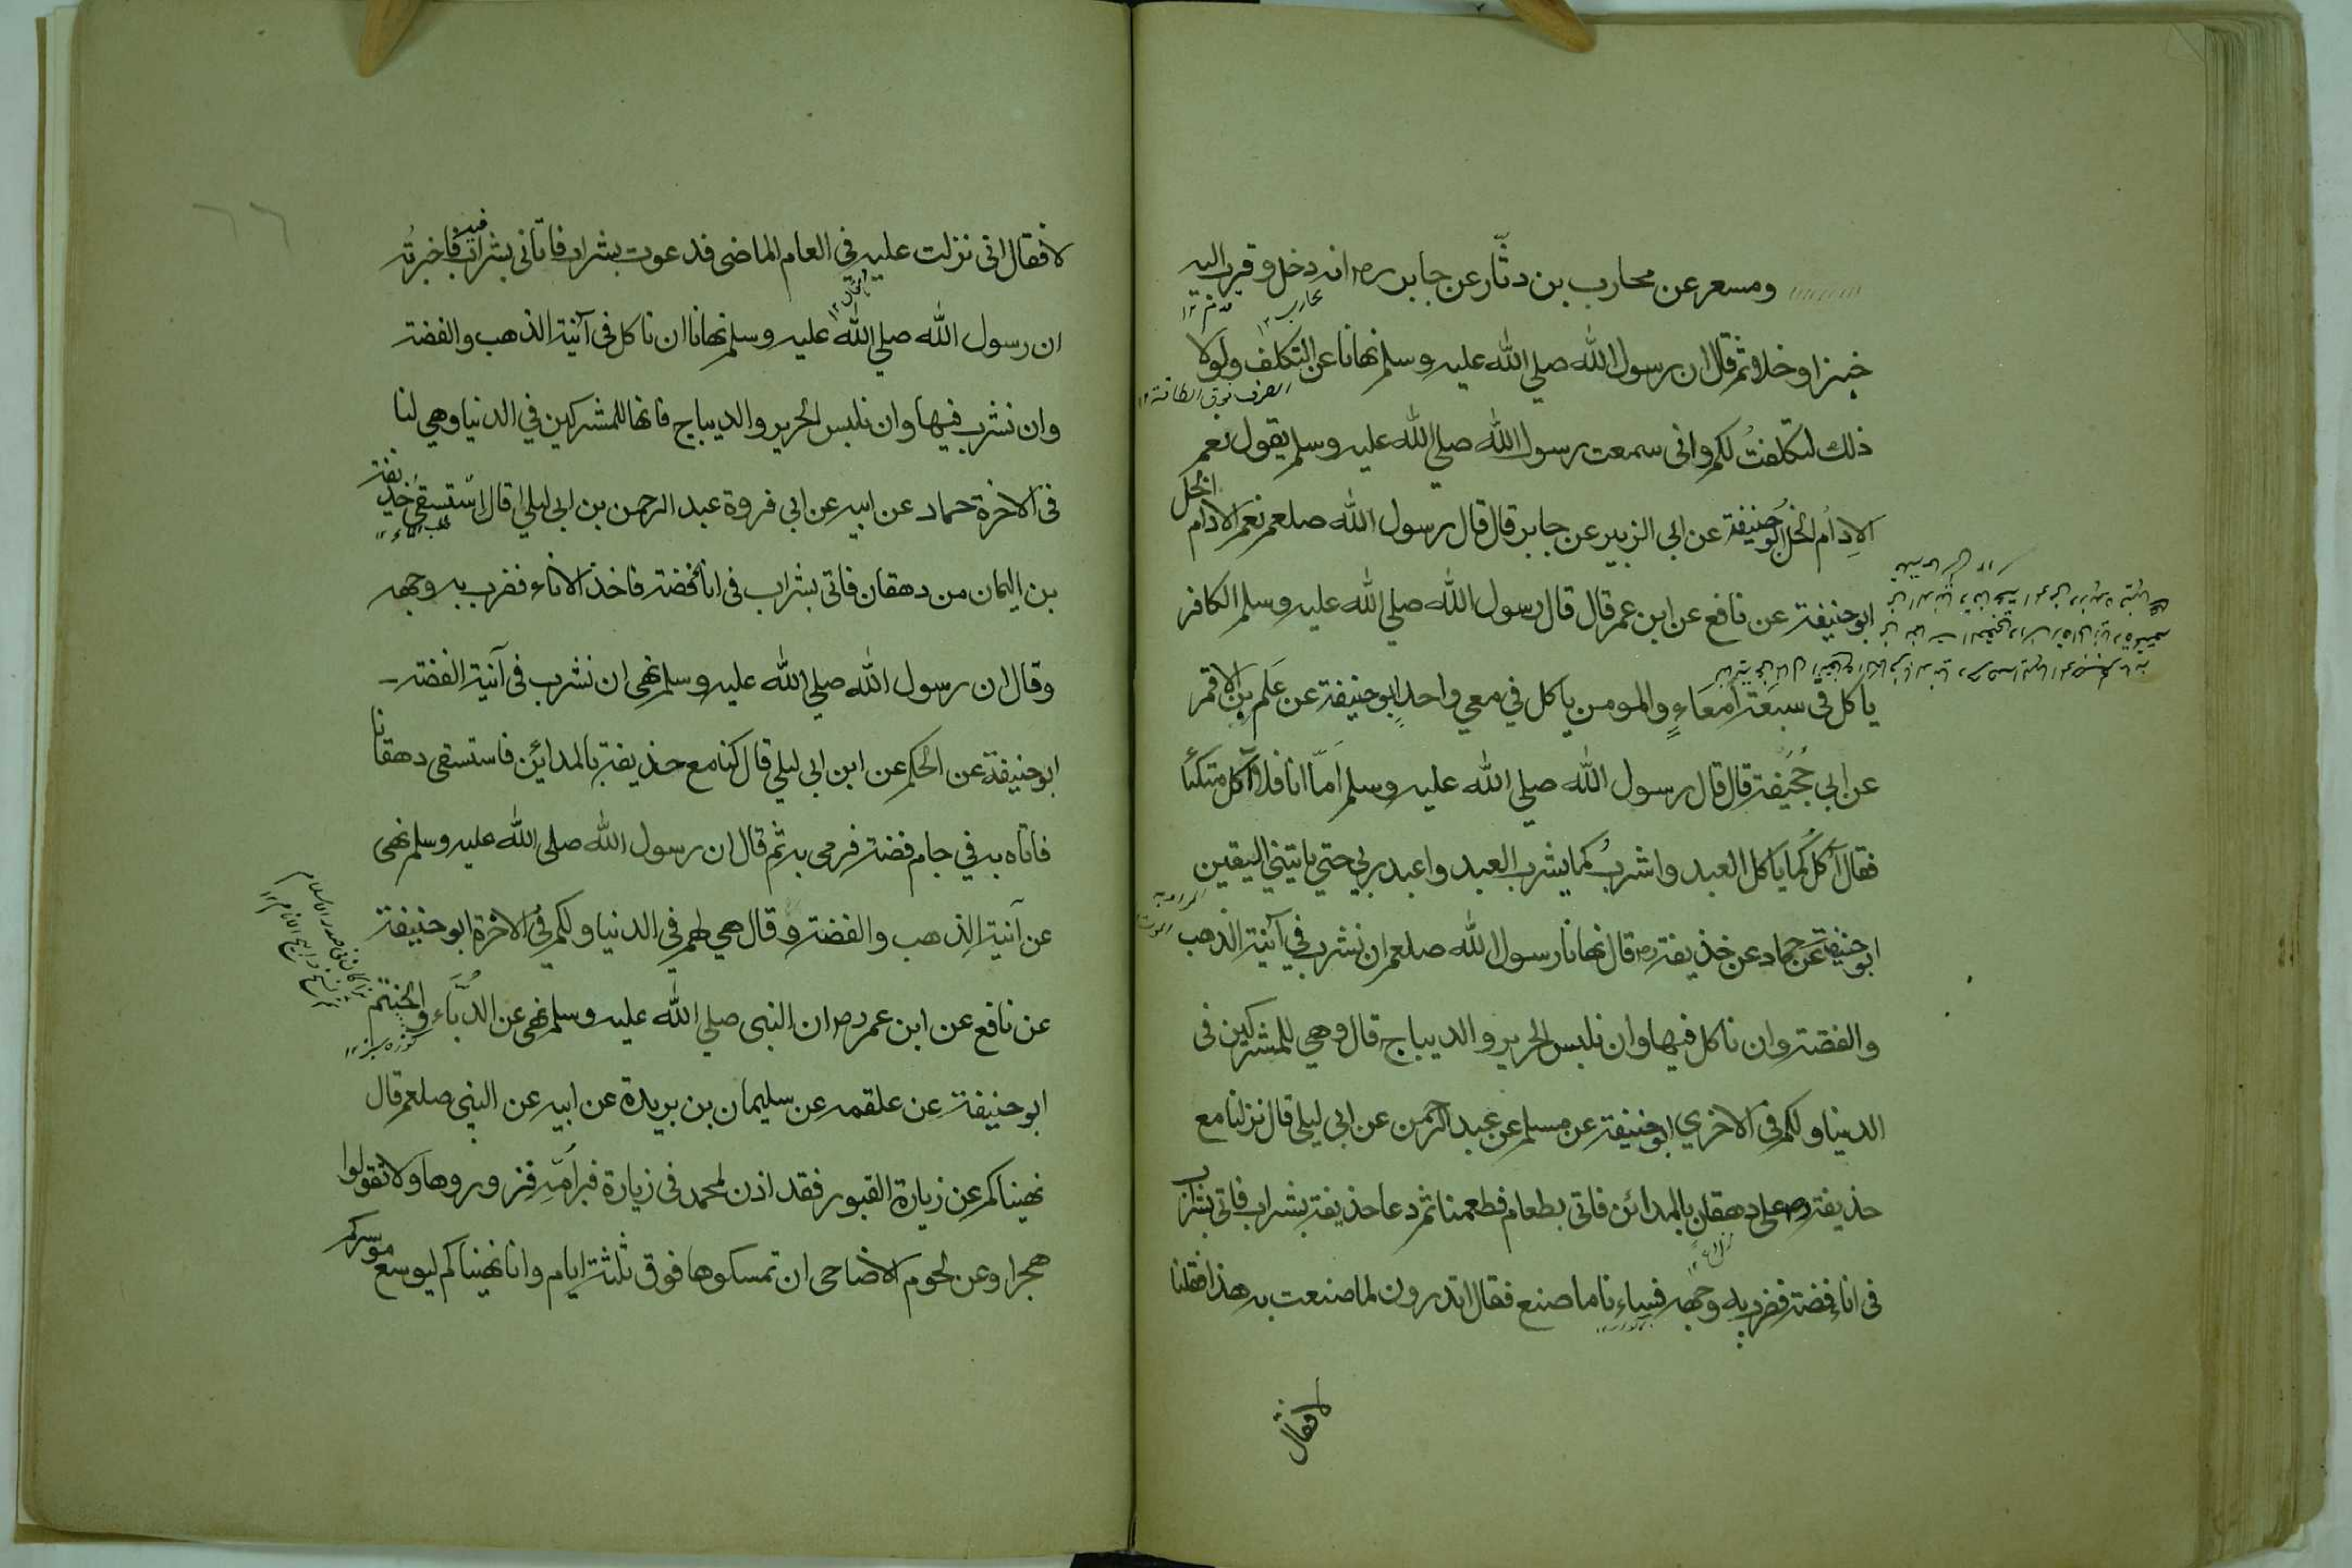 ومسعر عن محارب بن دثّار عن جابر رض انه دخل وقرب اليه
خبزا وخلا ثم قال ان رسول الله صلي الله عليه وسلم نهانا عن التكلف ولولا
ذلك لتكلفتُ لكم واني سمعت رسول الله صلي الله عليه وسلم يقول نعم
الاِدام الخل ابوحنيفة عن ابي الزبير عن جابر قال قال رسول الله صلعم نعم الادام الخل
ابوحنيفة عن نافع عن ابن عمر قال قال رسول الله صلي الله عليه وسلم الكافر
ياكل في سبعة امعاءٍ والمومن ياكل في معي واحدٍ ابوحنيفة عن عَلَم بن الاقمر
عن ابي جُحَيفة قال قال رسول الله صلي الله عليه وسلم اَمّا انا فلا آكل متكئا
فقال آكلُ كما ياكل العبد واشربُ كما يشرب العبد واعبد ربي حتي ياتيني اليقين
ابوحنيفة عن حماد عن حذيفة رض قال نهانا رسول الله صلعم ان نشرب في آنية الذهب
والفضة وان ناكل فيها وان نلبس الحرير والديباج قال وهي للمشركين في
الدنيا ولكم في الاخري ابوحنيفة عن مسلم عن عبد الرحمن عن ابي ليلي قال نزلنا مع
حذيفة رض علي دهقان بالمدائن فاتي بطعام فطعمنا ثم دعا حذيفة بشراب فاتي بشراب
في اناء فضة فضرب به وجهه فساءنا ما صنع فقال اتدرون لما صنعت به هذا فقلنا
لا فقال
لا فقال اني نزلت عليه في العام الماضي فدعوت بشراب فاتاني بشراب فيه فاخبرته
ان رسول الله صلي الله عليه وسلم نهانا ان ناكل في آنية الذهب والفضة
وان نشرب فيها وان نلبس الحرير والديباج فانها للمشركين في الدنيا وهي لنا
في الاخرة حماد عن ابيه عن ابي فروة عبد الرحمن بن ابي ليلي قال استسقي حذيفة
بن اليمان من دهقان فاتي بشراب في اناء فضة فاخذ الاناء فضرب به وجهه
وقال ان رسول الله صلي الله عليه وسلم نهي ان نشرب في آنية الفضة
ابوحنيفة عن الحكم عن ابن ابي ليلي قال كنا مع حذيفة بالمدائن فاستسقي دهقانا
فاتاه به في جام فضة فرمي به ثم قال ان رسول الله صلي الله عليه وسلم نهي
عن آنية الذهب والفضة وقال هي لهم في الدنيا ولكم في الاخرة ابوحنيفة
عن نافع عن ابن عمر رض ان النبي صلي الله عليه وسلم نهي عن الدُّبّاء والحنتم
كوزه سبز ١٢
ابوحنيفة عن علقمه عن سليمان بن بريدة عن ابيه عن النبي صلعم قال
نهيناكم عن زيارة القبور فقد اذن لمحمد في زيارة قبر اُمّه فزوروها ولا تقولوا
هجرا وعن لحوم الاضاحي ان تمسكوها فوق ثلثة ايام وانا نهيناكم ليوسع موسركم